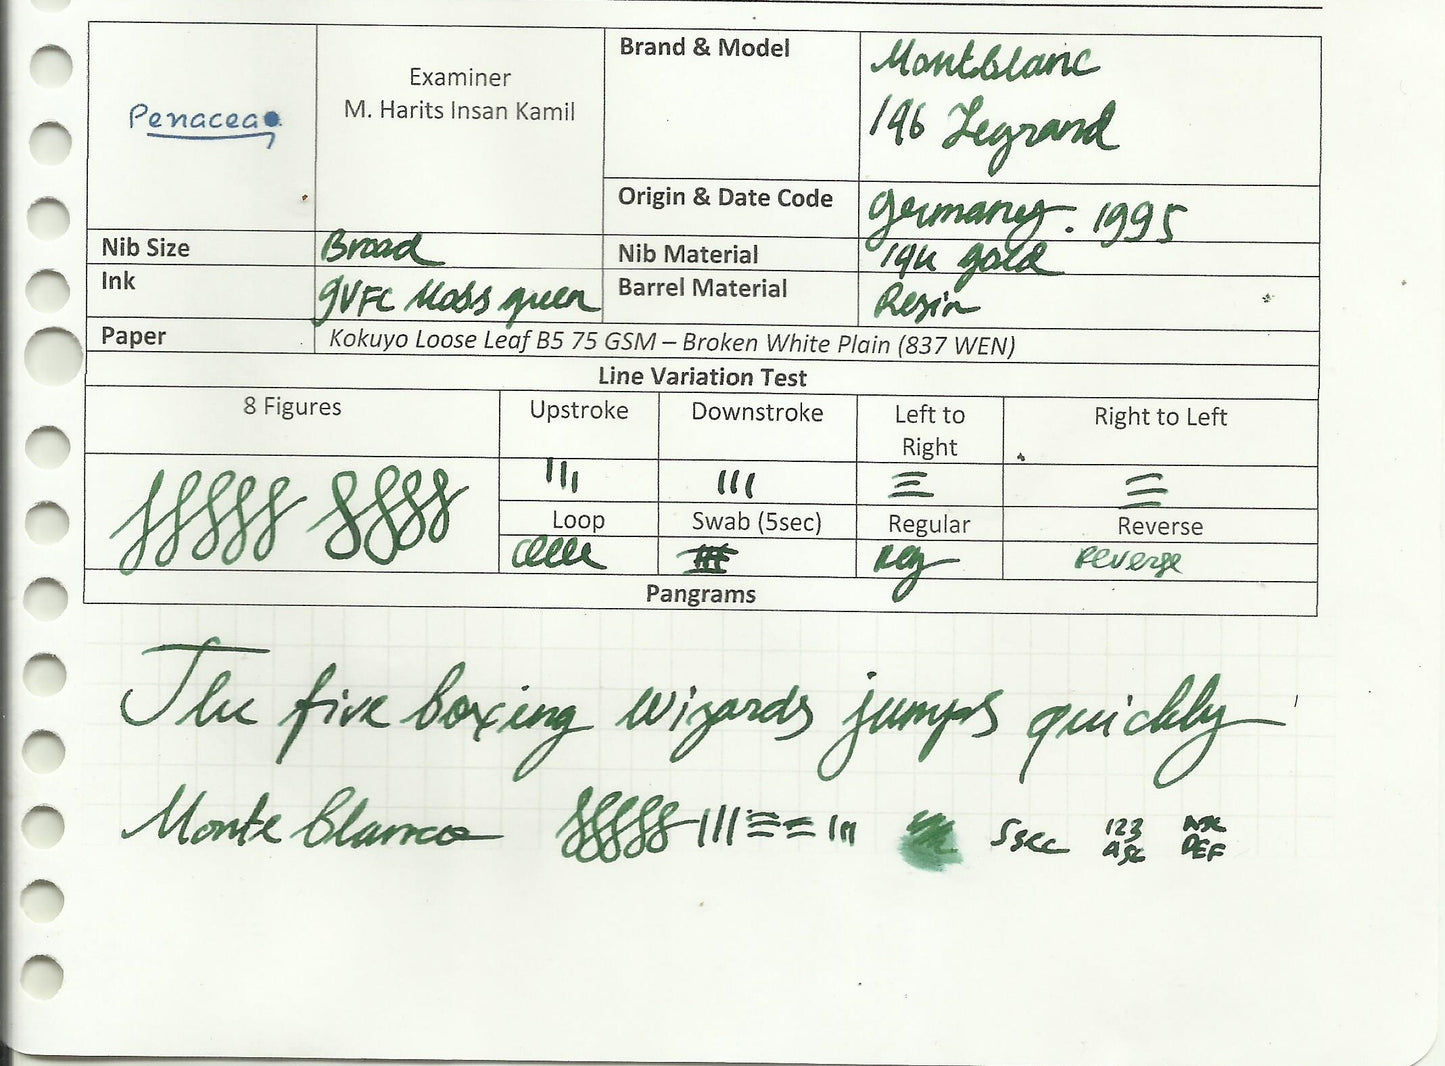 Penacea
Examiner
M. Harits Insan Kamil
Brand & Model
Montblanc
146 Legrand
Origin & Date Code
Germany. 1995
Nib Size
Broad
Nib Material
14K gold
Ink
GVFC Moss green
Barrel Material
Resin
Paper
Kokuyo Loose Leaf B5 75 GSM – Broken White Plain (837 WEN)
Line Variation Test
8 Figures
Upstroke
Downstroke
Left to
Right
Right to Left
Loop
Swab (5sec)
Regular
Reverse
Reg
Reverse
Pangrams
The five boxing wizards jumps quickly
Monte blanco
5sec
123
ABC
DEF